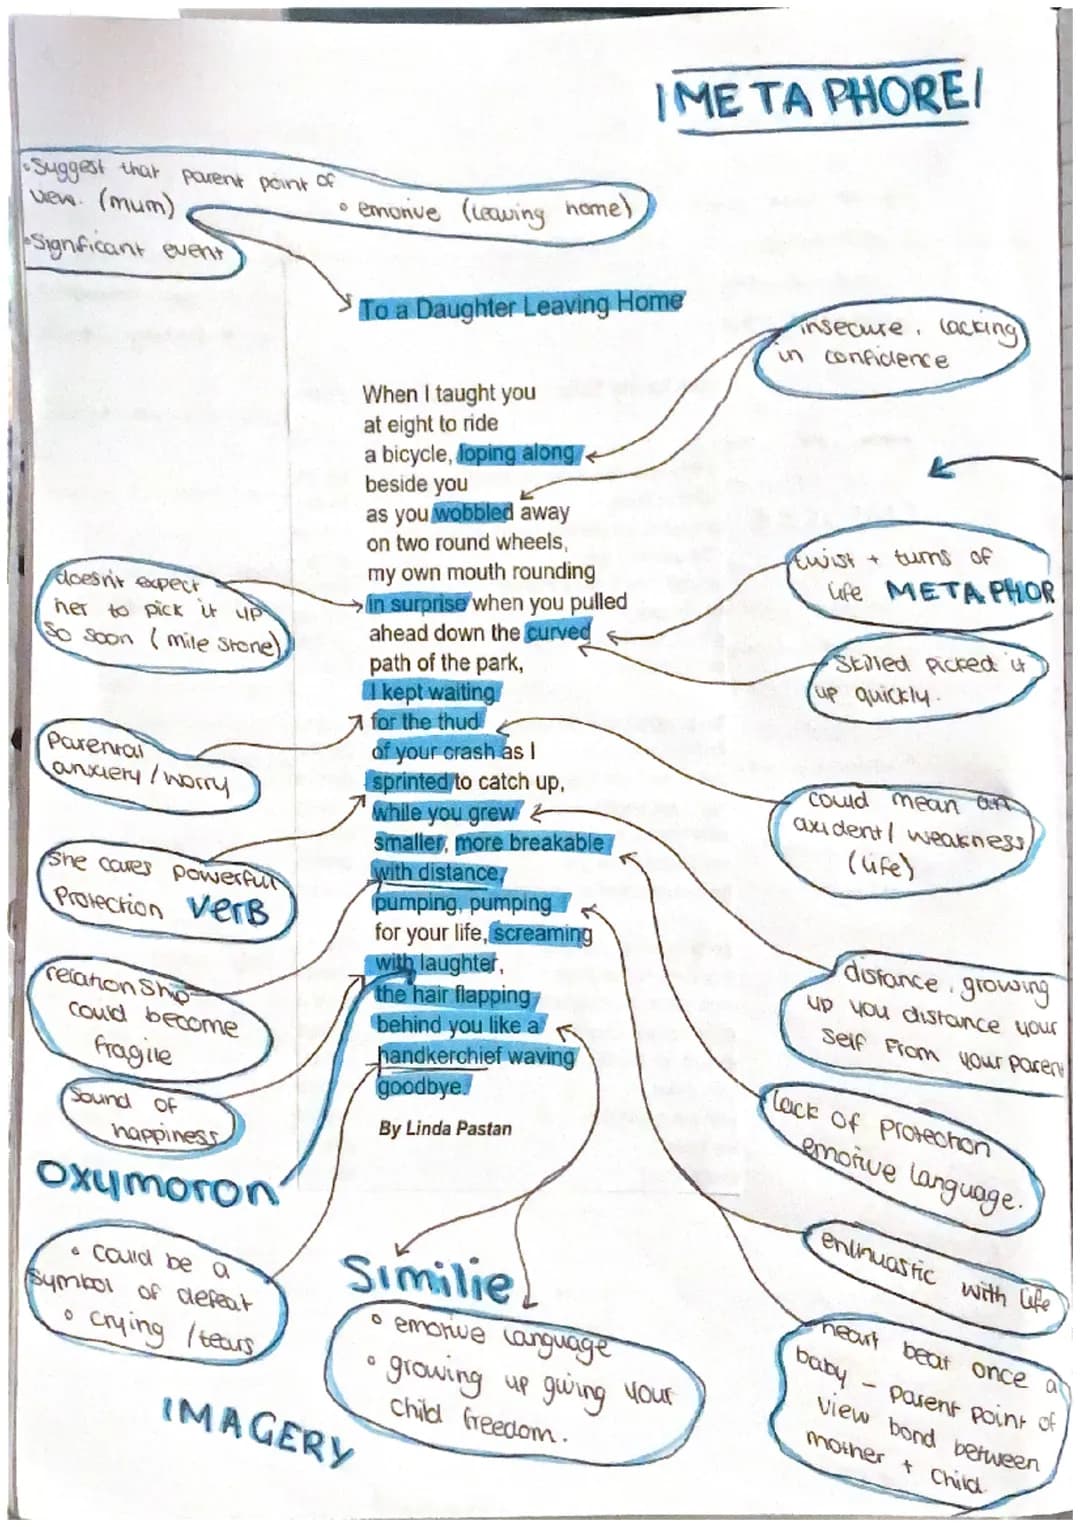 METAPHORE
• Suggest that parent point of
view. (mum)
• emotive (leaving home)
• Significant event
To a Daughter Leaving Home
insecure, lacking
in confidence
When I taught you
at eight to ride
a bicycle, loping along
beside you
as you wobbled away
on two round wheels,
my own mouth rounding
in surprise when you pulled
ahead down the curved
path of the park,
I kept waiting
for the thud
of your crash as I
sprinted to catch up,
while you grew
smaller, more breakable
with distance,
pumping, pumping
for your life, screaming
with laughter,
the hair flapping
behind you like a
handkerchief waving
goodbye.
By Linda Pastan
doesn't expect
her to pick it up
so soon (mile stone)
Parental
anxiety / worry
She cares powerful
Protection VerB
relationship
could become
fragile
Sound of
happiness
Oxymoron
• Could be a
symbol of defeat
• crying / tears
IMAGERY
Similie
• emotive language
• growing up giving your
child freedom.
twist + turns of
life METAPHOR
Skilled picked it
up quickly.
could mean an
axident / weakness
(life)
distance, growing
up you distance your
self from your parent
lack of protection
emotive language.
enthuastic with life
heart beat once a
baby - parent point of
view bond between
mother + child.